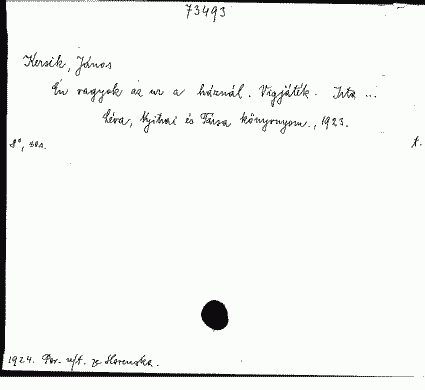 73493
Kersék, János
Én vagyok az ur a háznál. Vigjáték. Irta ...
Léva, Nyitrai és Társa könyvnyom., 1923.
8°, t.
1924. ze Slovenska.